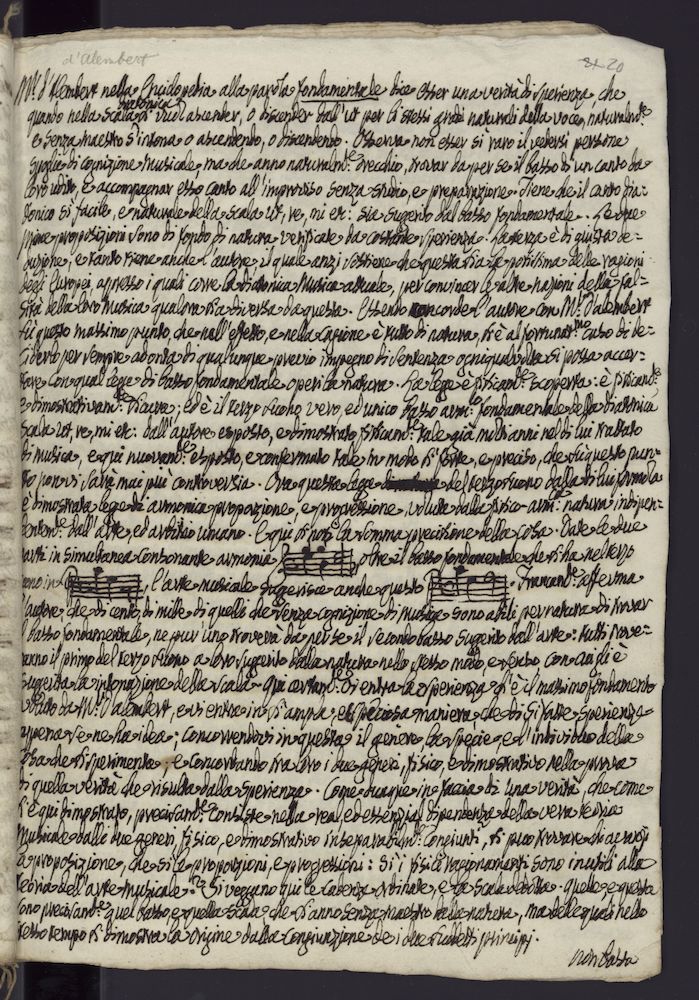 d'Alembert
20
Mr. d'Alembert nella Enciclopedia alla parola fondamentale dice esser una verità di sperienza, che
quando nella scala diatonica si vuol ascender, o discender dall'ut per li stessi gradi naturali della voce, naturalmte
e senza maestro s'intona o ascendendo, o discendendo. Osserva non esser sì raro il vedersi persone
spoglie di cognizione musicale, ma che anno naturalmte orecchio, trovar da per se il basso di un canto da
loro udito, e accompagnar esso canto all'improvviso senza studio, e preparazione. Tiene che il canto dia=
tonico sì facile, e naturale della scala ut, re, mi etc: sia sugerito dal basso fondamentale. Le due
prime proposizioni sono di fondo di natura verificate da costante sperienza. La terza è di giusta de=
duzione, e tanto tiene anche l'autore, il quale anzi sostiene che questa sia la potissima delle ragioni
degli Europei appresso i quali corre la diatonica Musica attuale, per convincer le altre nazioni della fal=
sità della loro musica qualora sia diversa da questa. Essendo concorde l'autore con Mr. d'alembert
su questo massimo punto, che nell'effetto, e nella cagione è tutto di natura, si è al fortunatmo caso di de=
cidere per sempre ad onta di qualunque previo impegno di sentenza ogniqualvolta si possa accer=
tare con qual legge di basso fondamentale operi la natura. La legge è fisicamte scoperta: è fisicamte
e dimostrativamte sicura; ed è il terzo suono vero, ed unico basso armco fondamentale della diatonica
scala ut, re, mi etc: dall'autore esposto, e dimostrato fisicamte tale già molti anni nel di lui trattato
di musica, e qui nuovamte esposto, e confermato tale in modo sì forte, e preciso, che su questo pun=
to non vi sarà mai più controversia. Ora questa legge del terzo suono dalla di lui formola
è dimostrata legge di armonica proporzione, e progressione voluta dalla fisico-armca natura indipen=
dentemte dall'arte, ed arbitrio umano. E qui si noti la somma precisione della cosa. Date le due
parti in simultanea consonante armonia, oltre il basso fondamentale che si ha nel terzo
suono in, l'arte musicale sugerisce anche questo. Francamte afferma
l'autore che di cento, di mille di quelli che senza cognizione di Musica sono abili per natura di trovar
il basso fondamentale, ne pur uno troverà da per se il secondo basso sugerito dall'arte: tutti trove=
ranno il primo del terzo suono a loro sugerito dalla natura nello stesso modo, e senso con cui gli è
sugerita la intonazione della scala. Qui certamte si entra la sperienza ch'è il massimo fondamento
voluto da Mr. d'alembert, e vi entra in sì ampla, e speciosa maniera che di sì fatte sperienze
appena se ne ha idea; concorrendovi in questa il genere la specie, e l'individuo della
cosa che si sperimenta; e concordando tra loro i due generi, fisico, e dimostrativo nella prova
di quella verità che risulta dalla sperienza. Come dunque in faccia di una verità, che come
si è qui dimostrato, precisamte consiste nella real, ed essenzial dipendenza della vera teoria
Musicale dalli due generi fisico, e dimostrativo inseparabilmte congiunti, si può trovare chi
la proposizione, che sì le proporzioni, e progressioni: sì i fisici ragionamenti sono inutili alla
teoria dell'arte musicale? Si vegano qui le cadenze ordinate, e la scala dedotta. quelle, e questa
sono precisamte quel basso, e quella scala che si anno senza maestro dalla natura, ma delle quali nello
stesso tempo si dimostra la origine dalla congiunzione de i due suddetti principj.